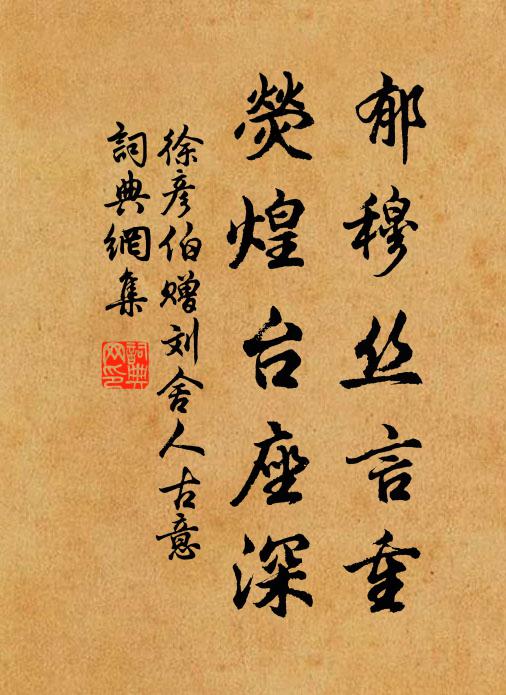 郁穆丝言重
熒煌台座深
徐彦伯赠刘舍人古意
詞典網集
詞典
网印